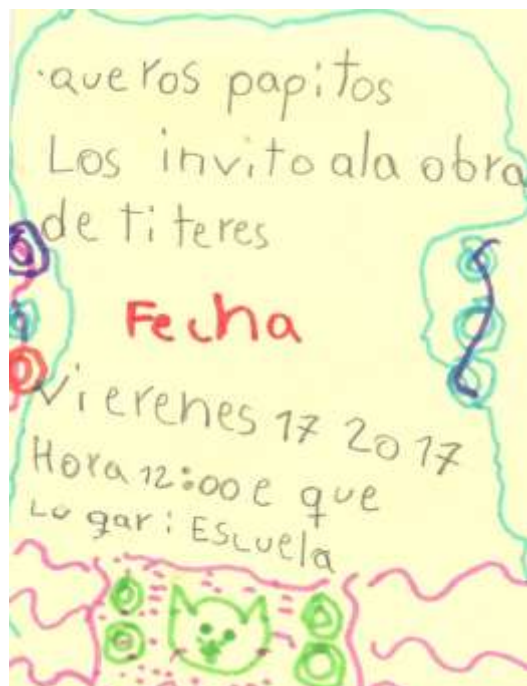 queros papitos
Los invito ala obra
de titeres
Fecha
vierenes 17 2017
Hora 12:00 e que
Lugar: Escuela